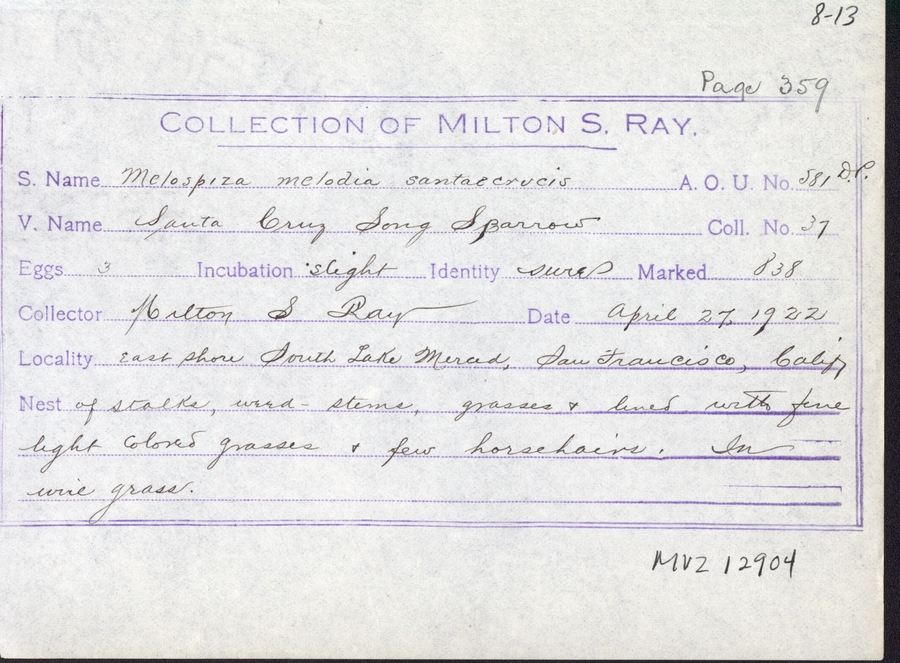 8-13
Page 359
COLLECTION OF MILTON S. RAY.
S. Name Melospiza melodia santaecrucis A. O. U. No. 581 D.P.
V. Name Santa Cruz Song Sparrow Coll. No. 37
Eggs 3 Incubation slight Identity sure Marked 838
Collector Milton S Ray Date April 27, 1922
Locality East shore South Lake Merced, San Francisco, Calif
Nest of stalks, weed-stems, grasses & lined with fine
light colored grasses & few horsehairs. In
wire grass.
MVZ 12904